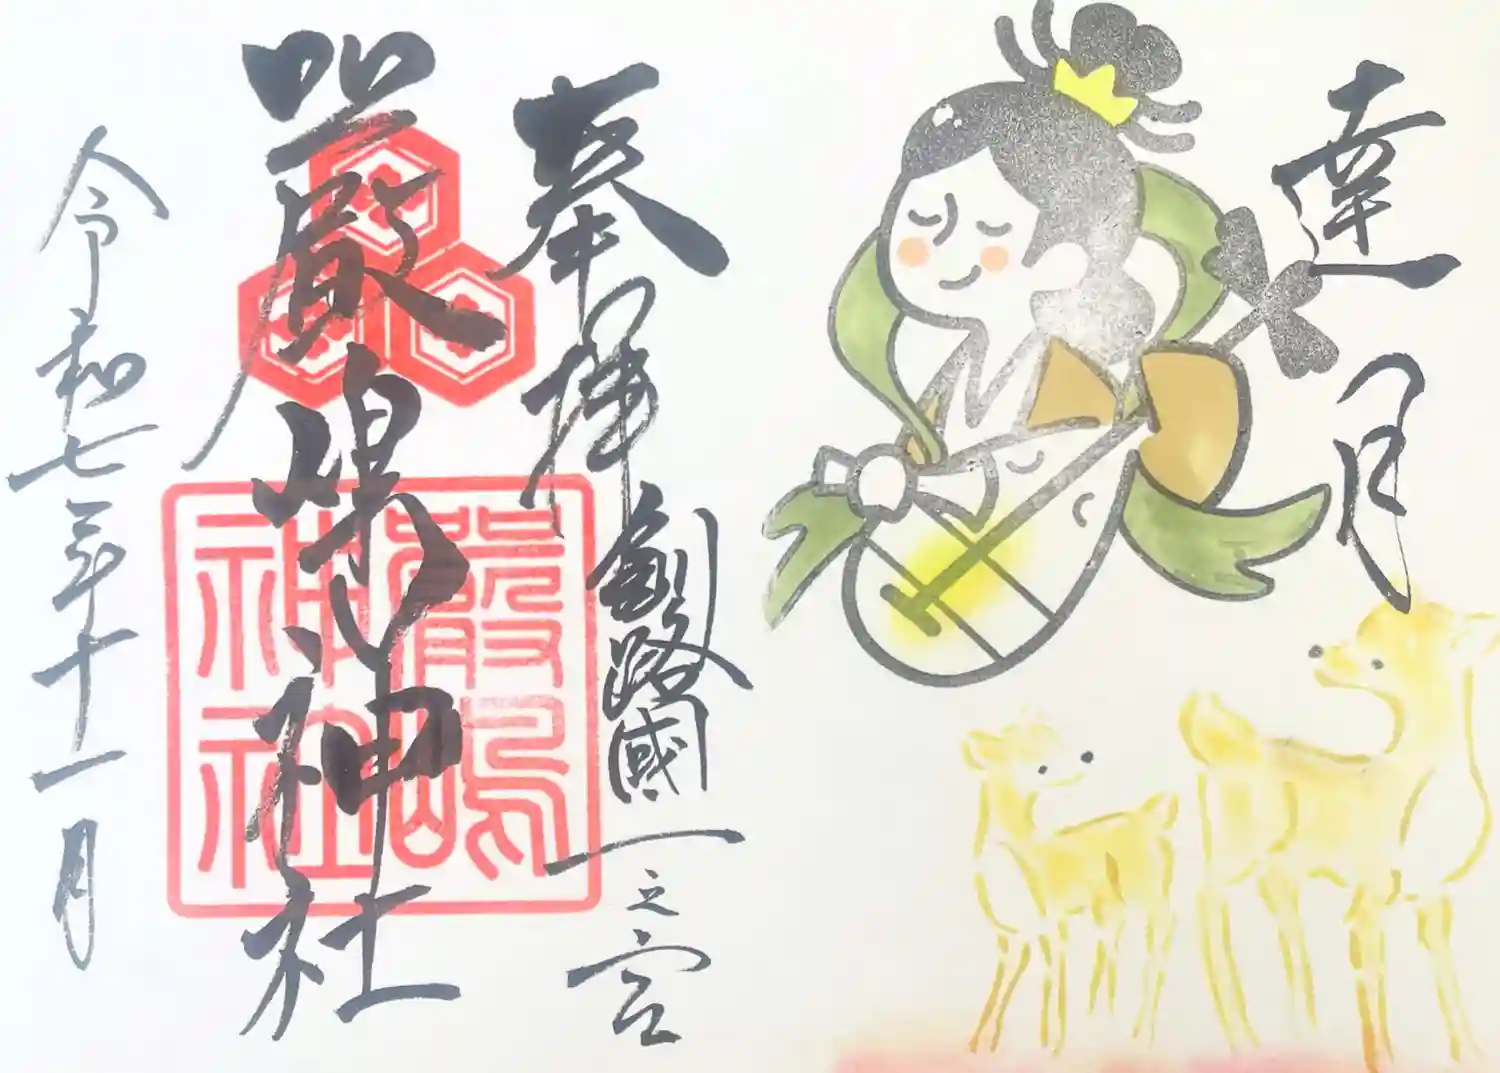 達月
奉拝
釧路國一之宮
嚴嶋神社
嚴島神社
令和七年十一月